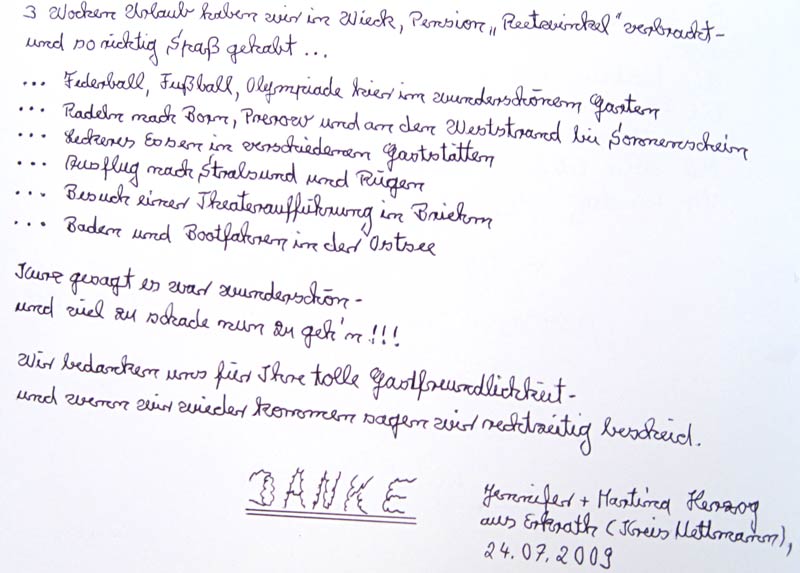 3 Wochen Urlaub haben wir in Wieck, Pension „Reetwinkel“ verbracht-
und so richtig Spaß gehabt ...
... Federball, Fußball, Olympiade hier im wunderschönem Garten
... Radeln nach Born, Prerow und an den Weststrand bei Sonnenschein
... Leckeres Essen in verschiedenen Gaststätten
... Ausflug nach Stralsund und Rügen
... Besuch einer Theateraufführung in
... Baden und Bootfahren in der Ostsee
Kurz gesagt es war wunderschön-
und viel zu schade nun zu geh'n!!!
Wir bedanken uns für Ihre tolle Gastfreundlichkeit-
und wenn wir wieder kommen sagen wir rechtzeitig bescheid.
DANKE
Jennifer + Martina Herzog
aus Erkrath (Kreis Mettmann),
24.07.2009